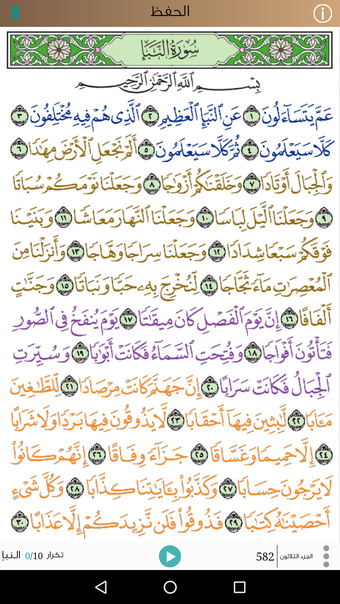 الحفظ
سُورَةُ النَّبَإِ
بِسْمِ اللَّهِ الرَّحْمَٰنِ الرَّحِيمِ
عَمَّ يَتَسَاءَلُونَ ١ عَنِ النَّبَإِ الْعَظِيمِ ٢ الَّذِي هُمْ فِيهِ مُخْتَلِفُونَ ٣
كَلَّا سَيَعْلَمُونَ ٤ ثُمَّ كَلَّا سَيَعْلَمُونَ ٥ أَلَمْ نَجْعَلِ الْأَرْضَ مِهَٰدًا ٦
وَالْجِبَالَ أَوْتَادًا ٧ وَخَلَقْنَٰكُمْ أَزْوَٰجًا ٨ وَجَعَلْنَا نَوْمَكُمْ سُبَاتًا
٩ وَجَعَلْنَا اللَّيْلَ لِبَاسًا ١٠ وَجَعَلْنَا النَّهَارَ مَعَاشًا ١١ وَبَنَيْنَا
فَوْقَكُمْ سَبْعًا شِدَادًا ١٢ وَجَعَلْنَا سِرَاجًا وَهَّاجًا ١٣ وَأَنزَلْنَا مِنَ
الْمُعْصِرَٰتِ مَاءً ثَجَّاجًا ١٤ لِّنُخْرِجَ بِهِ حَبًّا وَنَبَاتًا ١٥ وَجَنَّٰتٍ
أَلْفَافًا ١٦ إِنَّ يَوْمَ الْفَصْلِ كَانَ مِيقَٰتًا ١٧ يَوْمَ يُنفَخُ فِي الصُّورِ
فَتَأْتُونَ أَفْوَاجًا ١٨ وَفُتِحَتِ السَّمَاءُ فَكَانَتْ أَبْوَٰبًا ١٩ وَسُيِّرَتِ
الْجِبَالُ فَكَانَتْ سَرَابًا ٢٠ إِنَّ جَهَنَّمَ كَانَتْ مِرْصَادًا ٢١ لِّلطَّٰغِينَ
مَـَٔابًا ٢٢ لَّٰبِثِينَ فِيهَا أَحْقَابًا ٢٣ لَّا يَذُوقُونَ فِيهَا بَرْدًا وَلَا شَرَابًا
٢٤ إِلَّا حَمِيمًا وَغَسَّاقًا ٢٥ جَزَاءً وِفَاقًا ٢٦ إِنَّهُمْ كَانُوا
لَا يَرْجُونَ حِسَابًا ٢٧ وَكَذَّبُوا بِـَٔايَٰتِنَا كِذَّابًا ٢٨ وَكُلَّ شَيْءٍ
أَحْصَيْنَٰهُ كِتَٰبًا ٢٩ فَذُوقُوا فَلَن نَّزِيدَكُمْ إِلَّا عَذَابًا ٣٠
الجزء الثلاثون 582 تكرار 0/10 النبإ